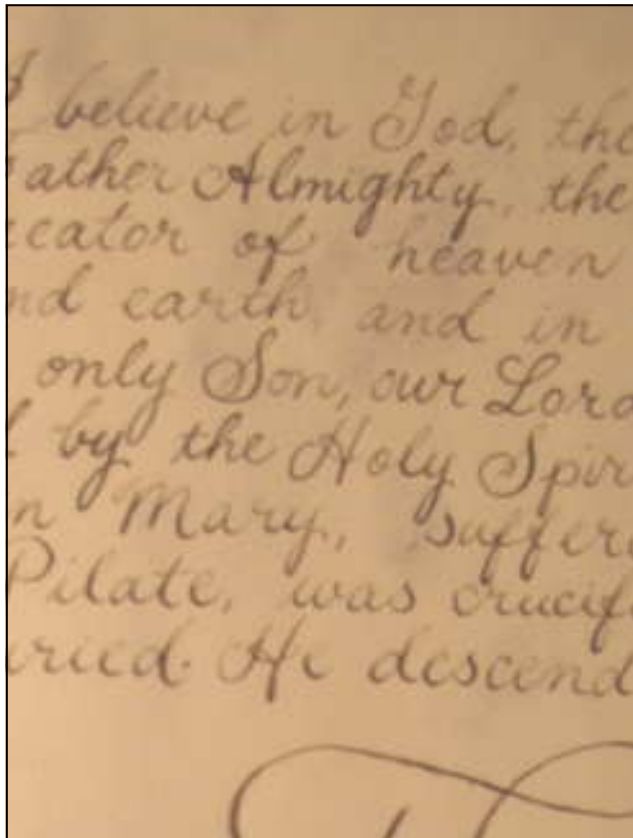 I believe in God, the
Father Almighty, the
reator of heaven
nd earth, and in
only Son, our Lord
by the Holy Spiri
n Mary, suffere
Pilate, was crucif
uried. He descend